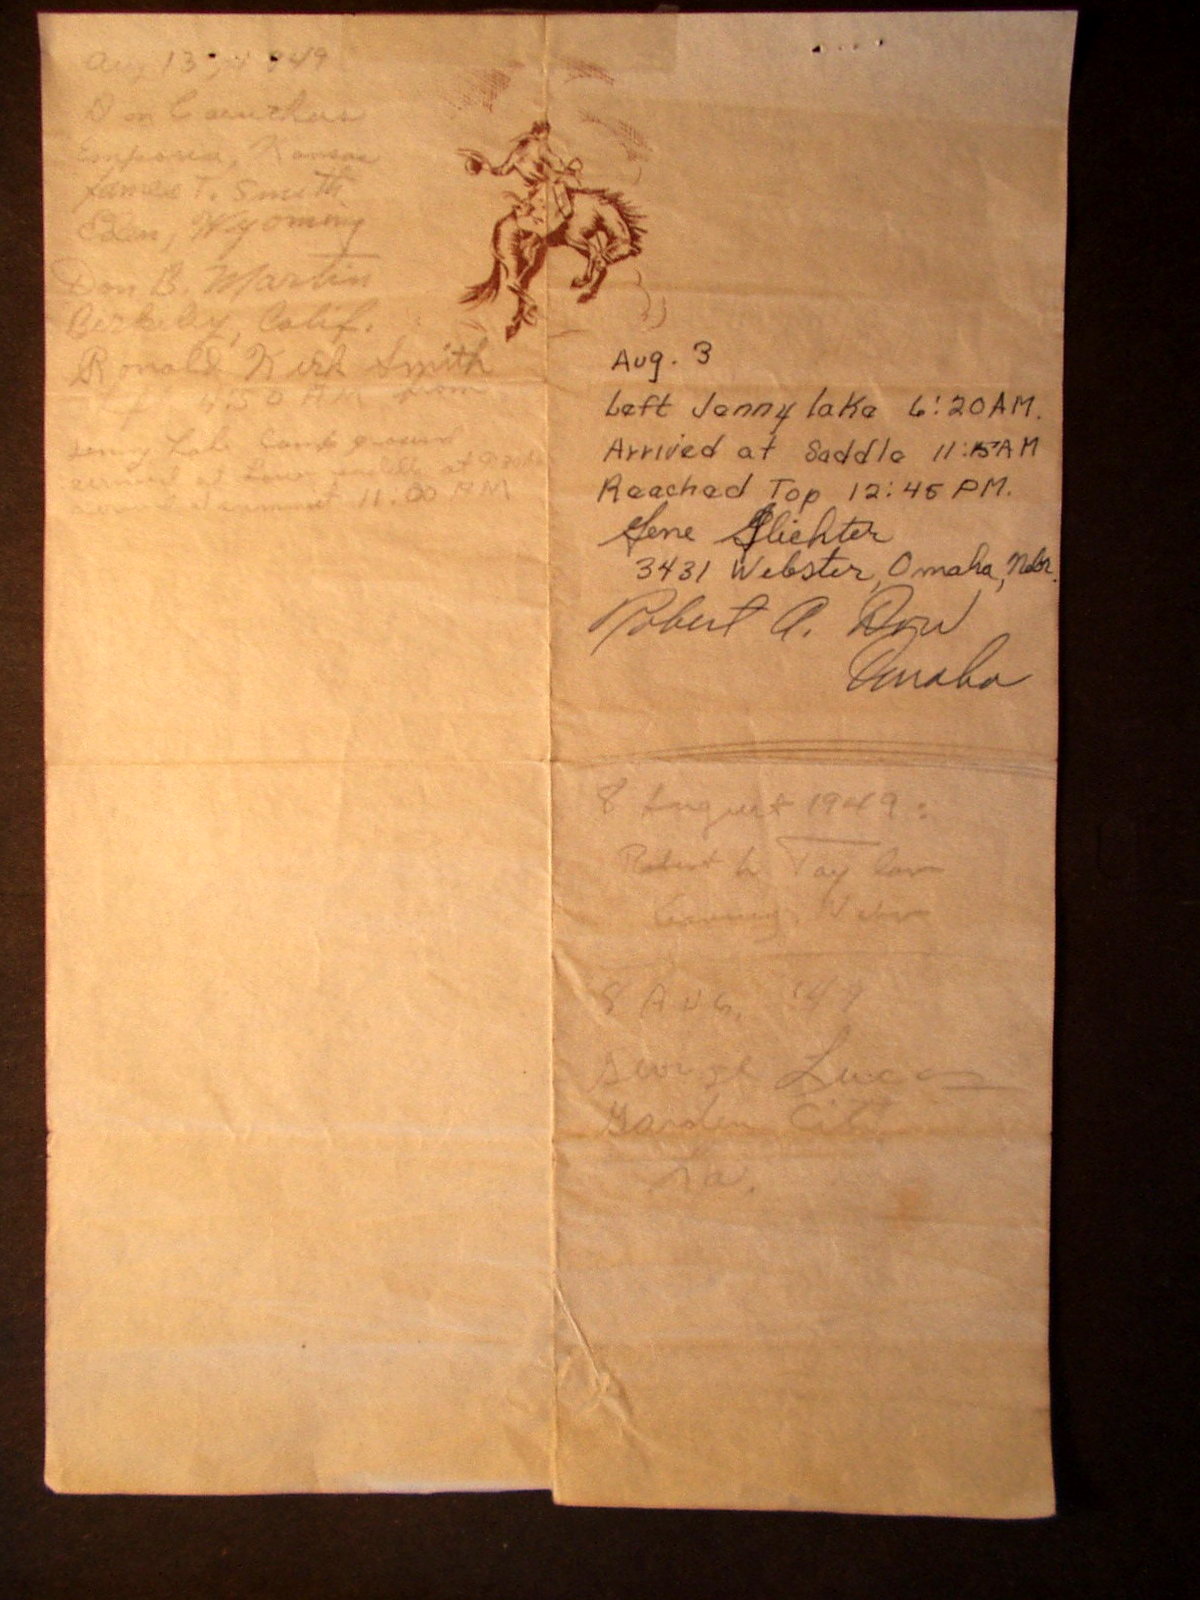 Aug 13, 1949
Don Caruthers
Emporia, Kansas
James T. Smith
Eden, Wyoming
Don B. Martin
Berkeley, Calif.
Ronald Kirk Smith
4:50 AM from
Jenny Lake Camp ground
arrived at saddle at
summit 11:00 AM
Aug. 3
Left Jenny lake 6:20 AM.
Arrived at Saddle 11:15 AM
Reached Top 12:45 PM.
Gene Slichter
3431 Webster, Omaha, Nebr.
Robert A. Dow
Omaha
8 August 1949:
Robert L Taylor
Nebr
8 AUG. '49
George Lucas
Garden City